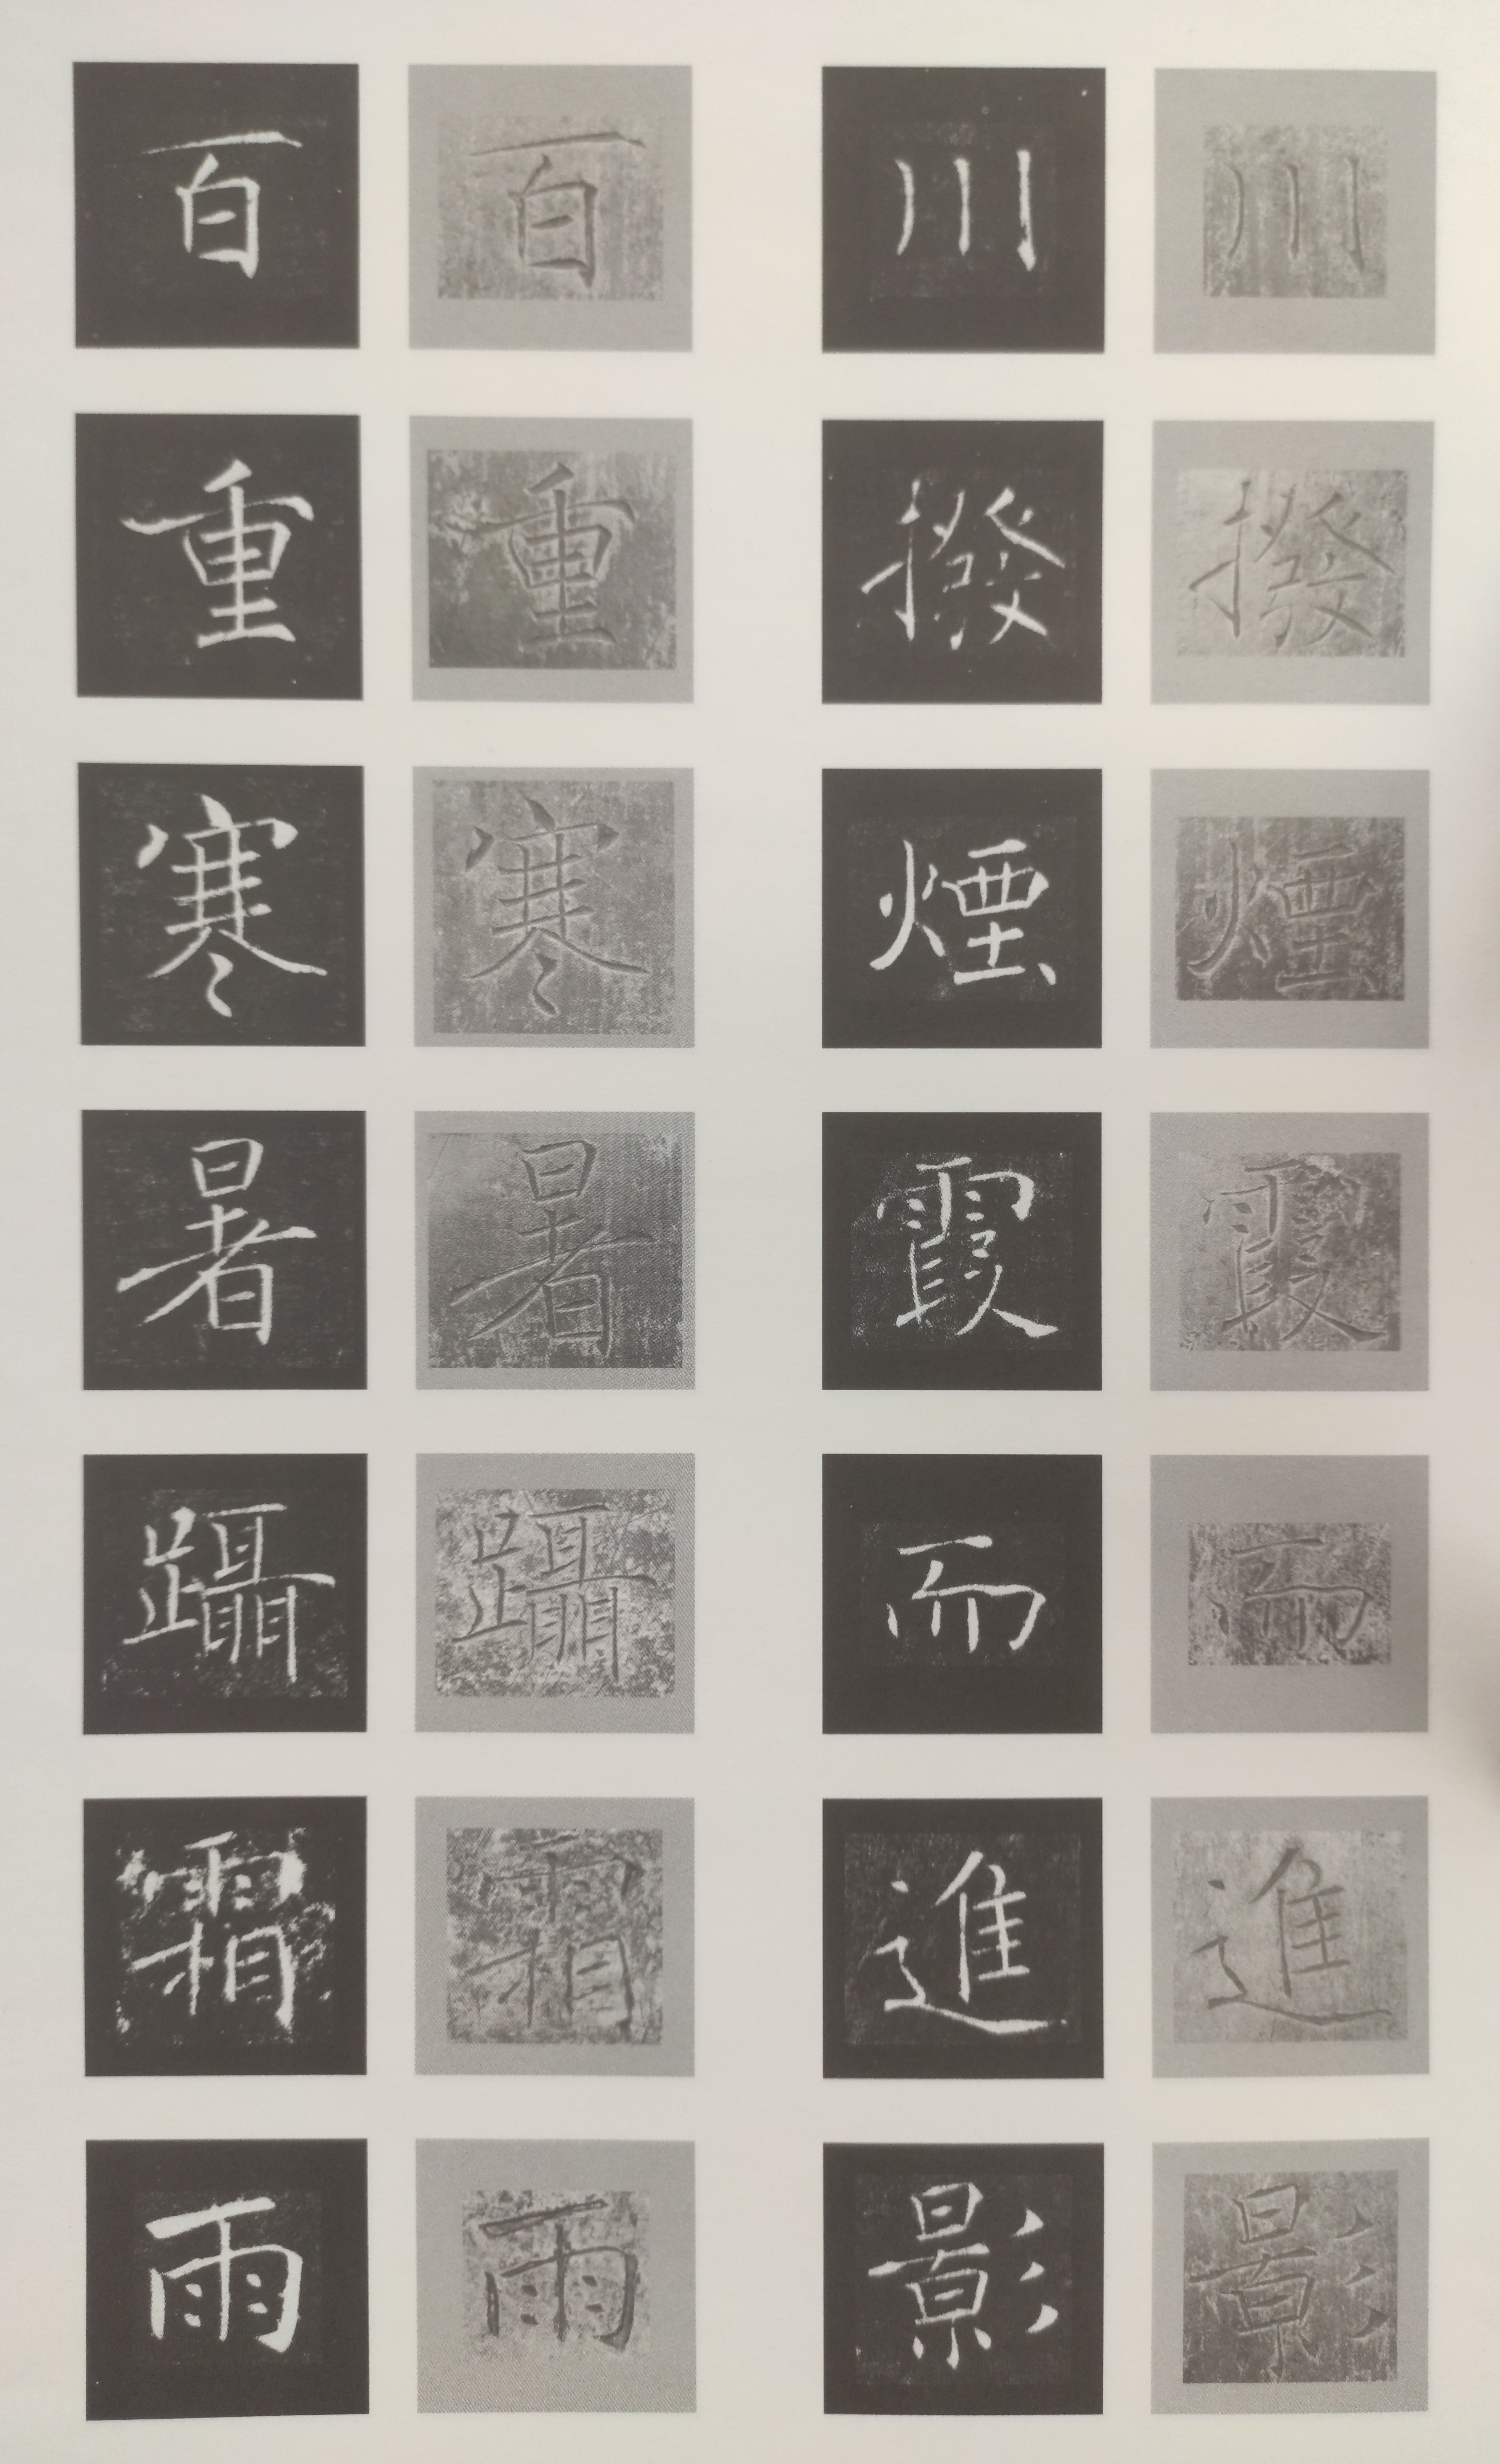 川撥煙霞而進影
川撥煙霞而進影
百重寒暑躡霜雨
百重寒暑躡霜雨